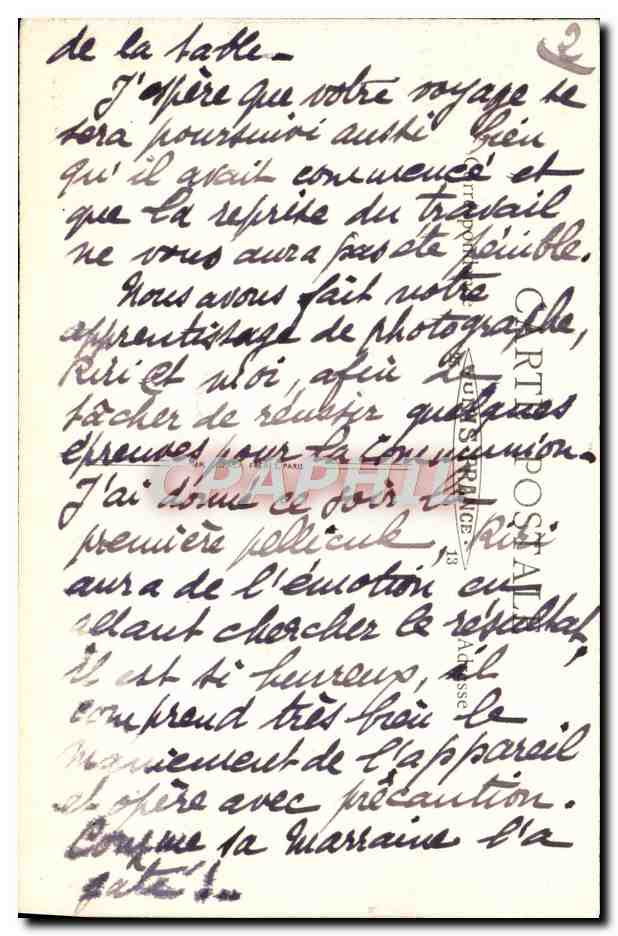 2
de la table -
J'espère que votre voyage se
sera poursuivi aussi bien
qu'il avait commencé et
que la reprise du travail
ne vous aura pas été pénible.
Nous avons fait notre
apprentissage de photographe,
Riri et moi, afin de
tâcher de réussir quelques
épreuves pour la communion -
J'ai donné ce soir la
première pellicule, Riri
aura de l'émotion en
allant chercher le résultat,
il est si heureux, il
comprend très bien le
maniement de l'appareil
et opère avec précaution.
Comme sa Marraine l'a
gâté !..
CARTE POSTALE
Correspondance
Adresse
FRANCE
13
FRÈRES, PARIS
CPAPHIL